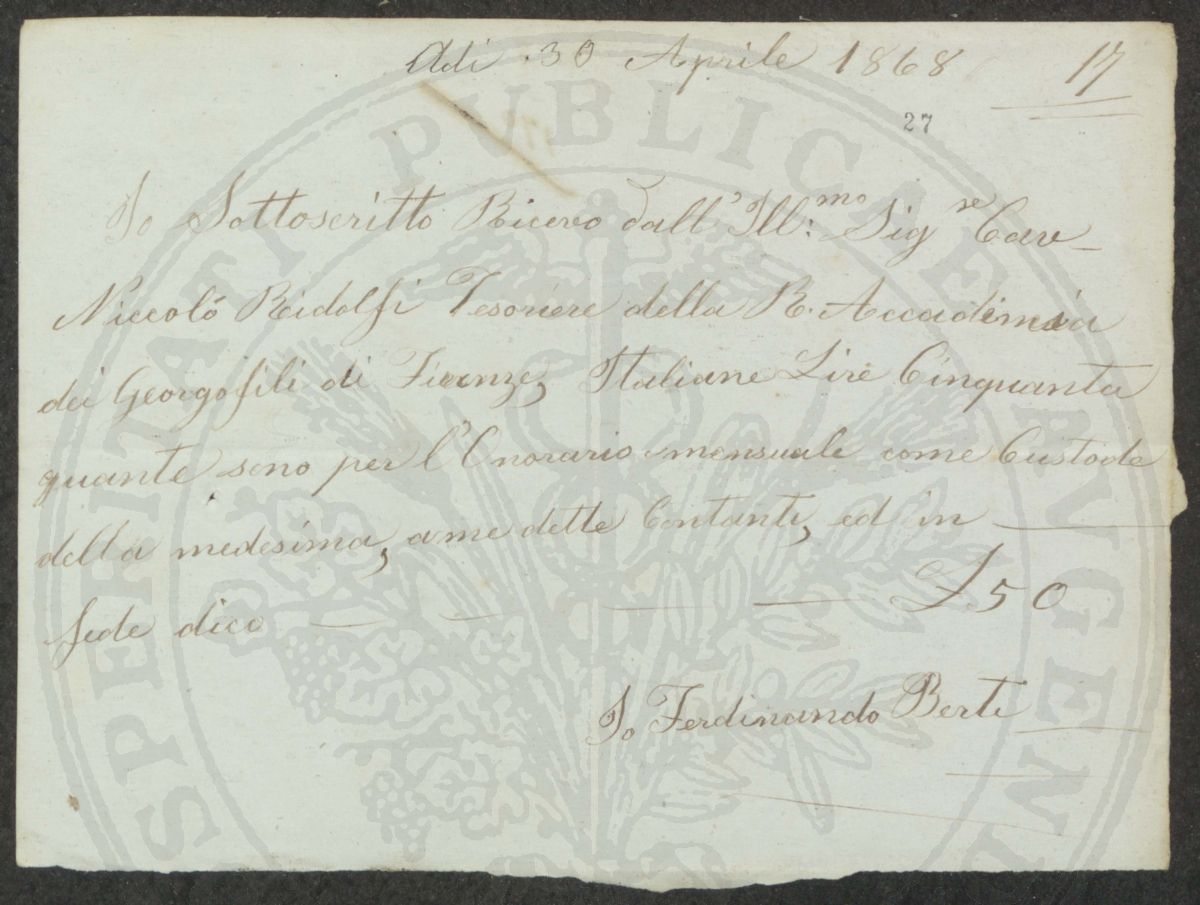 Adi 30 Aprile 1868 17
27
Io Sottoscritto Ricevo dall' Ill:mo Sig re Cav
Niccolò Ridolfi Tesoriere della R. Accadimia
dei Georgofili di Firenze, Italiane Lire Cinquanta
quante sono per l'Onorario mensuale come Custode
della medesima, a me dette Contanti, ed in
fede dico £50
Io Ferdinando Berti
PROSPERITATI PUBLICAE AUGENDAE